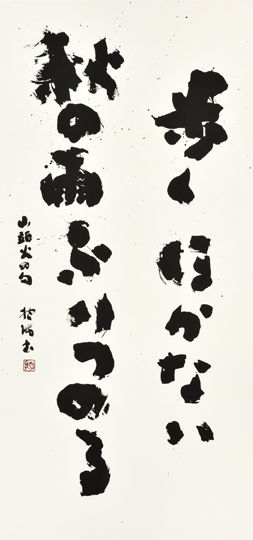 歩くほかない
秋の雨ふりつのる
山頭火の句